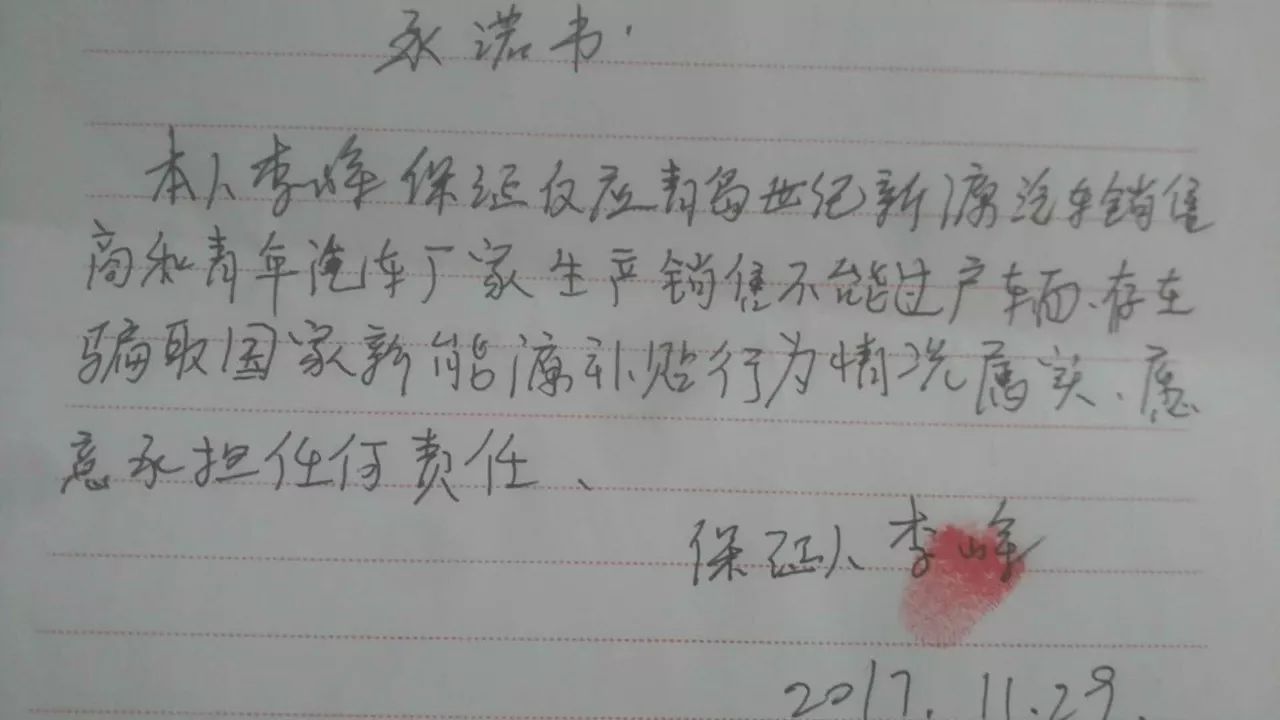 承诺书.
本人李峰保证反应青岛世纪新源汽车销售
商和青年汽车厂家生产销售不能过户车辆、存在
骗取国家新能源补贴行为情况属实、愿
意承担任何责任、
保证人李峰
2017.11.29.